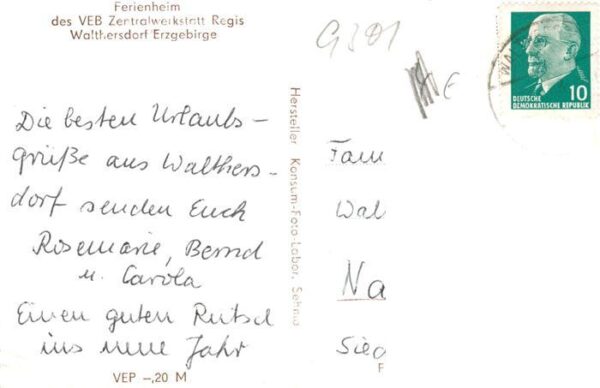 Ferienheim
des VEB Zentralwerkstatt Regis
Walthersdorf/Erzgebirge
Die besten Urlaubs-
grüße aus Walthers-
dorf senden Euch
Rosemarie, Bernd
u. Carola
Einen guten Rutsch
ins neue Jahr
VEP -,20 M
Hersteller Konsum-Foto-Labor, Sehma
G301
€
DEUTSCHE
DEMOKRATISCHE REPUBLIK
10
WAL
Fam
Wal
Na
Sieg
F